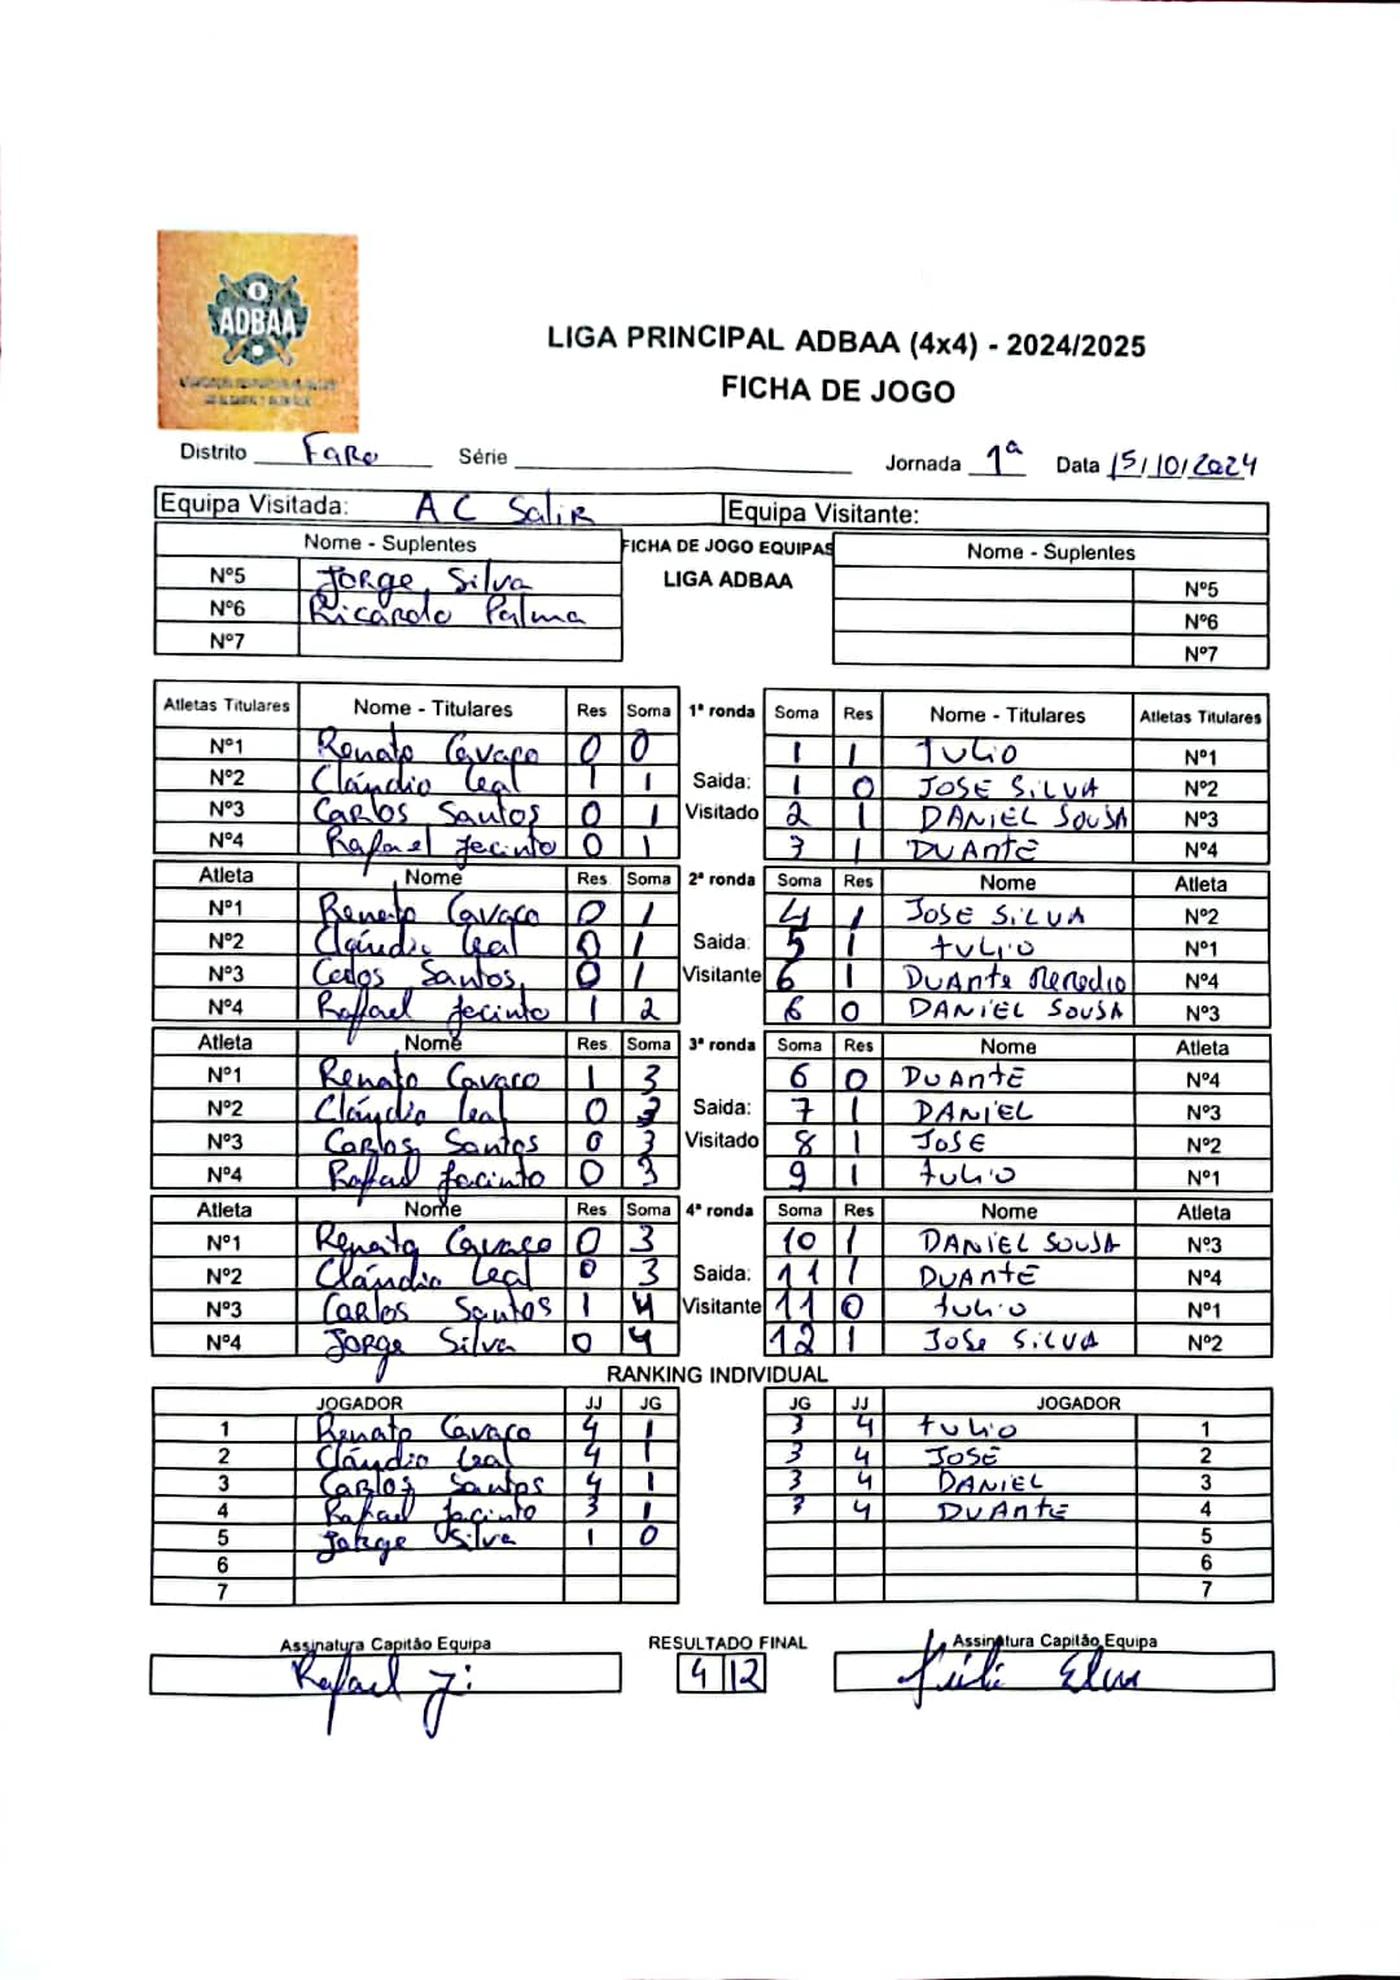 ADBAA
LIGA PRINCIPAL ADBAA (4x4) - 2024/2025
FICHA DE JOGO
Distrito Faro Série Jornada 1ª Data 15/10/2024
Equipa Visitada: A C Salir Equipa Visitante:
Nome - Suplentes FICHA DE JOGO EQUIPAS Nome - Suplentes
Nº5 Jorge Silva LIGA ADBAA Nº5
Nº6 Ricardo Palma Nº6
Nº7 Nº7
Atletas Titulares Nome - Titulares Res Soma 1ª ronda Soma Res Nome - Titulares Atletas Titulares
Nº1 Renato Cavaco 0 0 1 1 Tulio Nº1
Nº2 Cláudio Leal 1 1 Saida: 1 0 JOSE SILVA Nº2
Nº3 Carlos Santos 0 1 Visitado 2 1 DANIEL SOUSA Nº3
Nº4 Rafael Jacinto 0 1 3 1 DUARTE Nº4
Atleta Nome Res Soma 2ª ronda Soma Res Nome Atleta
Nº1 Renato Cavaco 0 1 4 1 JOSE SILVA Nº2
Nº2 Cláudio Leal 0 1 Saida: 5 1 tulio Nº1
Nº3 Carlos Santos 0 1 Visitante 6 1 DUARTE Nº4
Nº4 Rafael Jacinto 1 2 6 0 DANIEL SOUSA Nº3
Atleta Nome Res Soma 3ª ronda Soma Res Nome Atleta
Nº1 Renato Cavaco 1 3 6 0 DUARTE Nº4
Nº2 Cláudio Leal 0 3 Saida: 7 1 DANIEL Nº3
Nº3 Carlos Santos 0 3 Visitado 8 1 JOSE Nº2
Nº4 Rafael Jacinto 0 3 9 1 tulio Nº1
Atleta Nome Res Soma 4ª ronda Soma Res Nome Atleta
Nº1 Renato Cavaco 0 3 10 1 DANIEL SOUSA Nº3
Nº2 Cláudio Leal 0 3 Saida: 11 1 DUARTE Nº4
Nº3 Carlos Santos 1 4 Visitante 11 0 tulio Nº1
Nº4 Jorge Silva 0 4 12 1 Jose SILVA Nº2
RANKING INDIVIDUAL
JOGADOR JJ JG JG JJ JOGADOR
1 Renato Cavaco 4 1 3 4 tulio 1
2 Cláudio Leal 4 1 3 4 JOSE 2
3 Carlos Santos 4 1 3 4 DANIEL 3
4 Rafael Jacinto 3 1 3 4 DUARTE 4
5 Jorge Silva 1 0 5
6 6
7 7
Assinatura Capitão Equipa RESULTADO FINAL Assinatura Capitão Equipa
Rafael 4 12